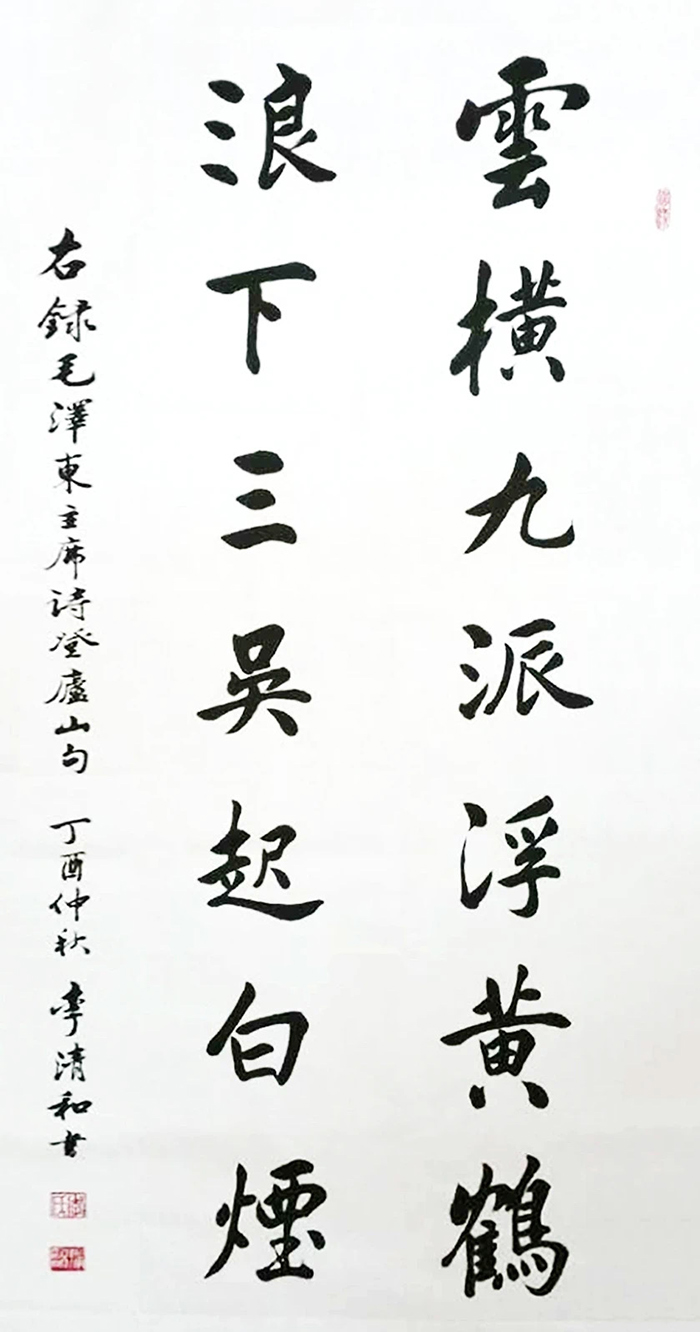 雲橫九派浮黄鶴
浪下三吳起白煙
右録毛澤東主席詩登廬山句 丁酉仲秋 李清和书